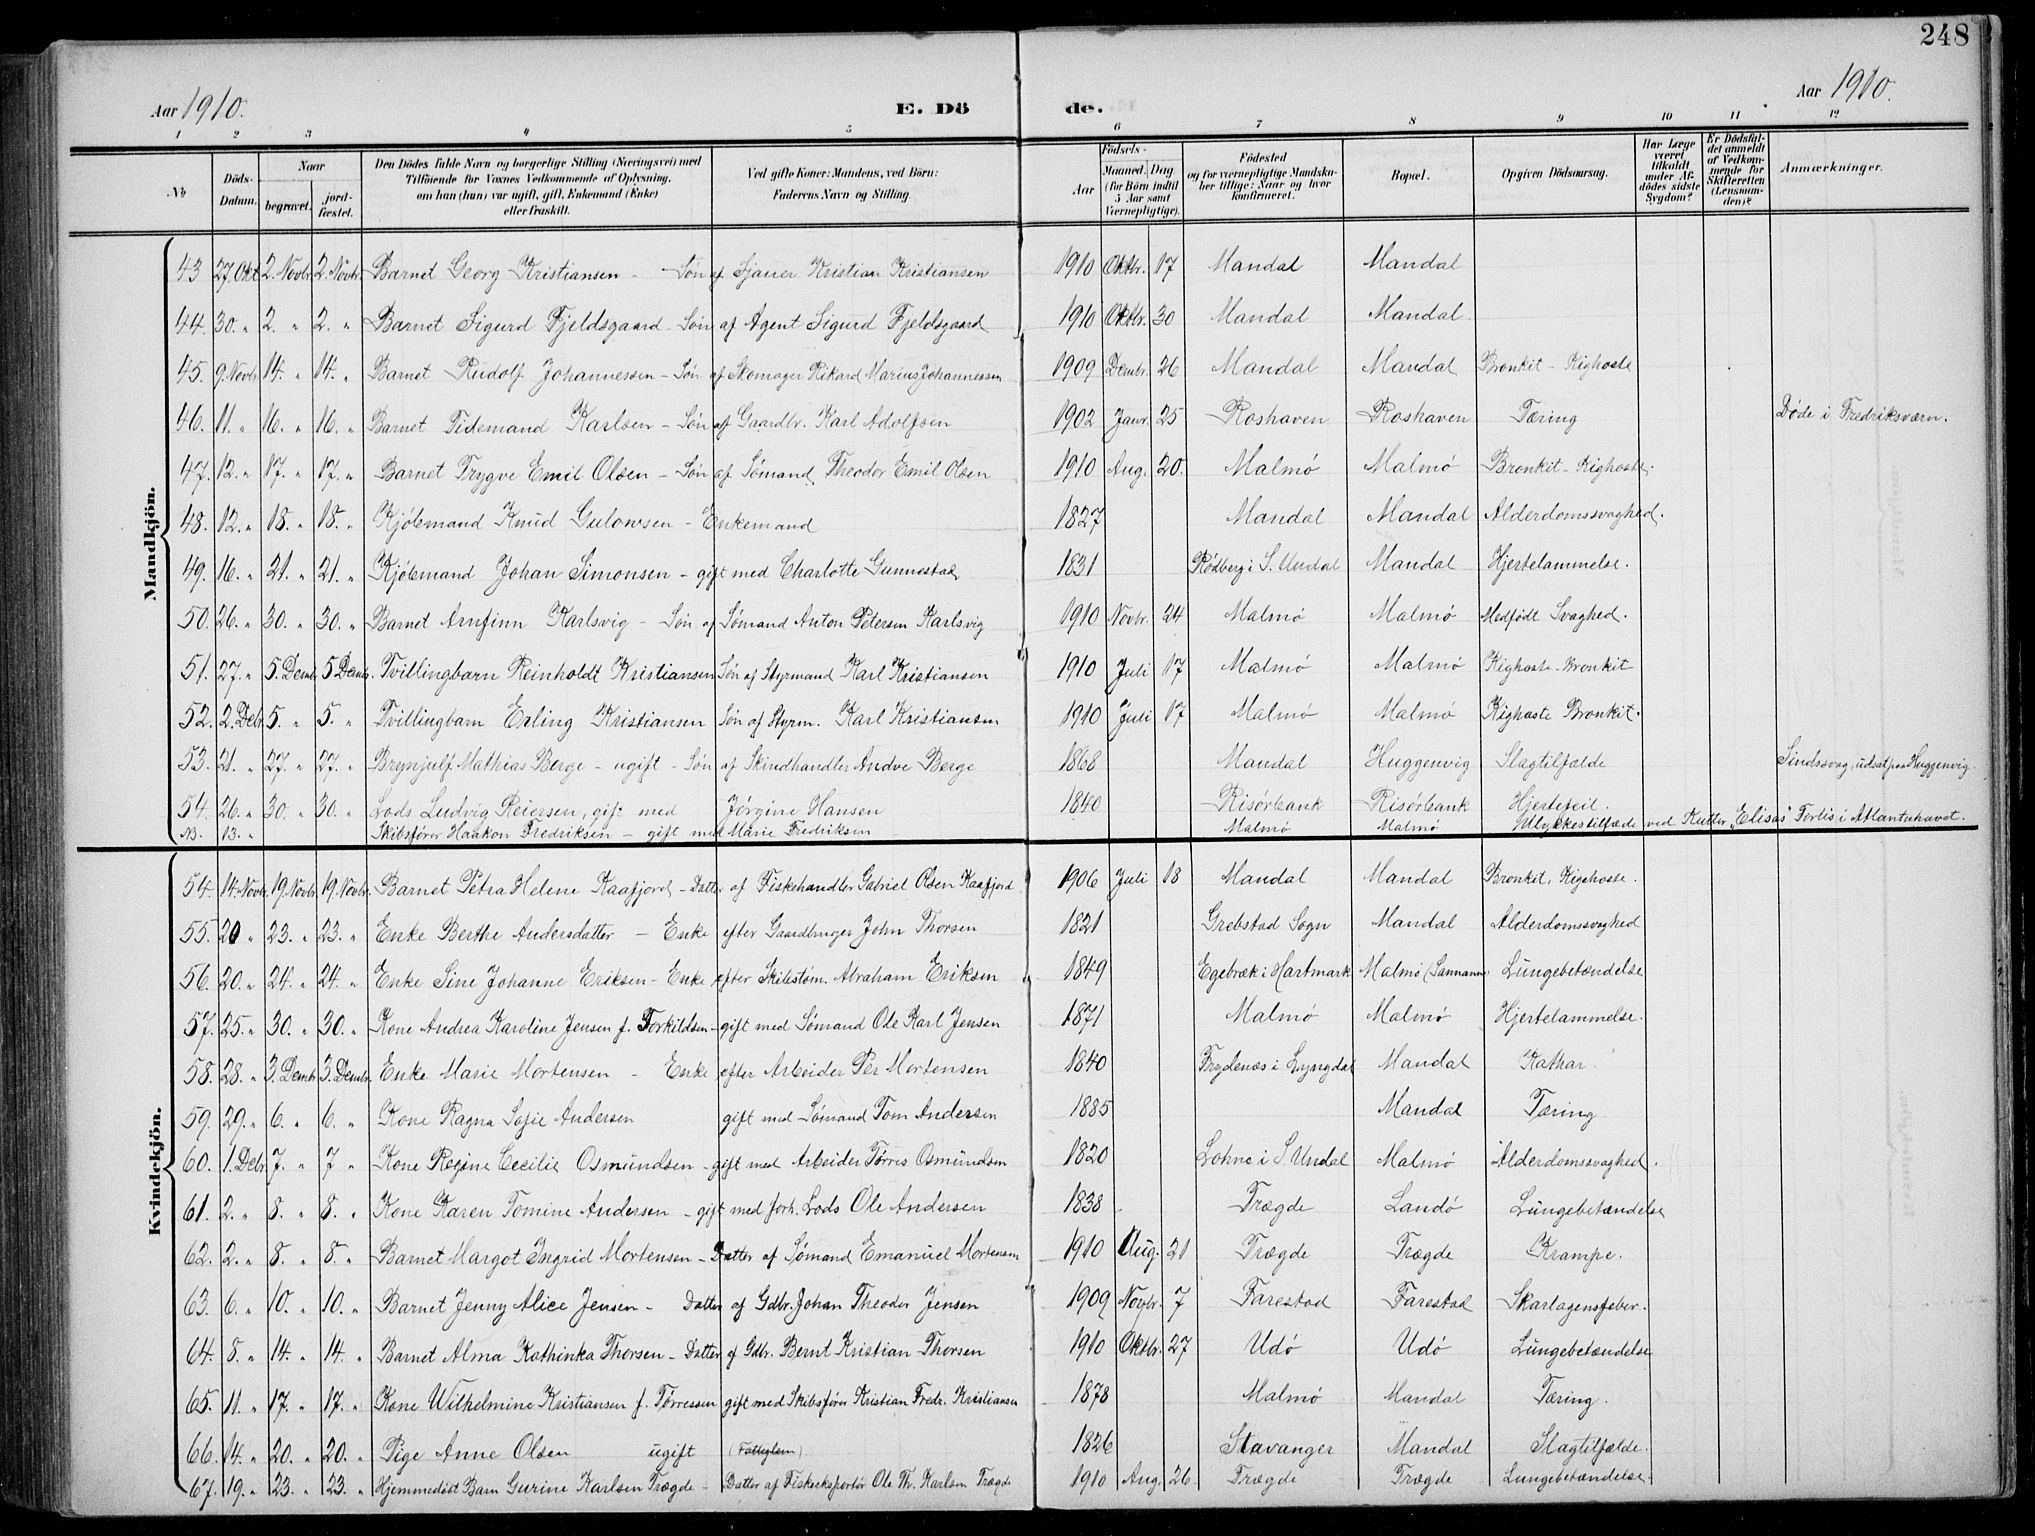 248
Aar 1910.
E. Dö de.
Aar 1910.
1 2 3 4 5 6 7 8 9 10 11 12
No
Döds-Datum.
Naar
begravet.
jord-fæstet.
Den Dödes fulde Navn og borgerlige Stilling (Næringsvei) med
Tilföiende for Voxnes Vedkommende af Oplysning,
om han (hun) var ugift, gift, Enkemand (Enke)
eller fraskilt.
Ved gifte Koner: Mandens, ved Börn:
Faderens Navn og Stilling.
Födsels-
Aar
Maaned. Dag
(for Börn indtil
5 Aar samt
Værnepligtige).
Födested
og for værnepligtige Mandska-
ber tillige: Naar og hvor
konfirmeret.
Bopæl.
Opgiven Dödsaarsag.
Har Læge
været
tilkaldt
under Af-
dödes sidste
Sygdom?
Er Dödsfal-
det anmeldt
af Vedkom-
mende for
Skifteretten
(Lensman-
den)?
Anmærkninger.
Mandkjön.
43 27. Okt. 2. Novbr. 2. Novbr. Barnet Georg Kristiansen - Søn af Sjauer Kristian Kristiansen 1910 Oktbr. 17 Mandal Mandal
44. 30. " 2. " 2. " Barnet Sigurd Fjeldsgaard - Søn af Agent Sigurd Fjeldsgaard 1910 Oktbr. 30 Mandal Mandal.
45. 9. Novbr. 14. " 14. " Barnet Rudolf Johannessen - Søn af Skomager Rikard Marius Johannessen 1909 Dembr. 26 Mandal Mandal Bronkit - Kighoste
46. 11. " 16. " 16. " Barnet Tidemand Karlsen - Søn af Gaardbr. Karl Adolfsen 1902 Janr. 25 Roshaven Roshaven Tæring Døde i Fredriksværn.
47. 12. " 17. " 17. " Barnet Trygve Emil Olsen - Søn af Sømand Theodor Emil Olsen 1910 Aug. 20. Malmø Malmø Bronkit - Kighoste.
48. 12. " 18. " 18. " Kjøbmand Knud Gulowsen - Enkemand 1827 Mandal Mandal Alderdomssvaghed.
49. 16. " 21. " 21. " Kjøbmand Johan Simonsen - gift med Charlotte Gunnestad 1831 Rødberg i S. Undal Mandal Hjertelammelse.
50. 26. " 30. " 30. " Barnet Arnfinn Karlsvig - Søn af Sømand Anton Petersen Karlsvig 1910 Novbr. 24 Malmø Malmø Medfødt Svaghed.
51. 27. " 5. Dembr. 5 Dembr. Tvillingbarn Reinholdt Kristiansen Søn af Styrmand Karl Kristiansen 1910 Juli 17 Malmø Malmø Kighoste - Bronkit
52. 2. Debr. 5. " 5. " Tvillingbarn Erling Kristiansen Søn af Styrm. Karl Kristiansen 1910 Juli 17 Malmø Malmø Kighoste Bronkit.
53. 21. " 27. " 27. " Brynjulf Mathias Berge - ugift - Søn af Skindhandler Berge 1868 Mandal Huggenvig Slagtilfælde Sindssvag, udsat paa Huggenvig.
54. 26. " 30. " 30. " Lods Ludvig Reiersen, gift med Jørgine Hansen 1840 Risørbank Risørbank Hjertefeil.
NB. 13. " Skibsfører Haakon Fredriksen - gift med Marie Fredriksen Malmø Malmø Ulykkestilfælde ved Kutter "Elisas" Forlis i Atlanterhavet.
Kvindekjön.
54. 14. Novbr. 19. Novbr. 19. Novbr. Barnet Petra Helene Kaafjord - Datter af Fiskehandler Gabriel Olsen Kaafjord 1906 Juli 18 Mandal Mandal Bronkit, Kighoste.
55. 20 " 23. " 23. " Enke Berthe Andersdatter - Enke efter Gaardbruger John Thorsen 1821 Grebstad Sogn Mandal Alderdomssvaghed
56. 20. " 24. " 24. " Enke Sine Johanne Eriksen - Enke efter Skibstøm. Abraham Eriksen 1849 Egebræk i Hartmark Malmø (Sannanne) Lungebetændelse
57. 25. " 30. " 30. " Kone Andrea Karoline Jensen f. Torkildsen - gift med Sømand Ole Karl Jensen 1871 Malmø Malmø Hjertelammelse.
58. 28. " 3. Dembr. 3. Dembr. Enke Marie Mortensen - Enke efter Arbeider Per Mortensen 1840 Frydenæs i Lyngdal Mandal Kathar.
59. 29. " 6. " 6. " Kone Ragna Sofie Andersen gift med Sømand Tom Andersen 1885 Mandal Tæring
60. 1. Debr. 7. " 7 " Kone Regine Cecilie Osmundsen - gift med Arbeider Tørres Osmundsen 1820 Lohne i S Undal Malmø Alderdomssvaghed.
61. 2. " 8. " 8. " Kone Karen Tomine Andersen - gift med forh. Lods Ole Andersen 1838 Trægde Landø Lungebetændelse
62. 2. " 8. " 8. " Barnet Margot Ingrid Mortensen - Datter af Sømand Emanuel Mortensen 1910 Aug. 21 Trægde Trægde Krampe.
63. 6. " 10. " 10. " Barnet Jenny Alice Jensen - Datter af Gdbr. Johan Theodor Jensen 1909 Novbr. 7 Farestad Farestad Skarlagensfeber.
64. 8. " 14. " 14. " Barnet Alma Kathinka Thorsen - Datter af Gdbr. Bernt Kristian Thorsen 1910 Oktbr. 27 Udø Udø Lungebetændelse
65. 11. " 17. " 17. " Kone Wilhelmine Kristiansen f. Tørressen gift med Skibsfører Kristian Fredr. Kristiansen 1878 Malmø Mandal Tæring.
66. 14. " 20. " 20. " Pige Anne Olsen ugift (Fattiglem) 1826 Stavanger Mandal Slagtilfælde.
67. 19. " 23. " 23. " Hjemmedøbt Barn Gurine Karlsen Trægde - Datter af Fiskeeksportør Ole Th. Karlsen Trægde 1910 Aug. 26. Trægde Trægde Lungebetændelse.